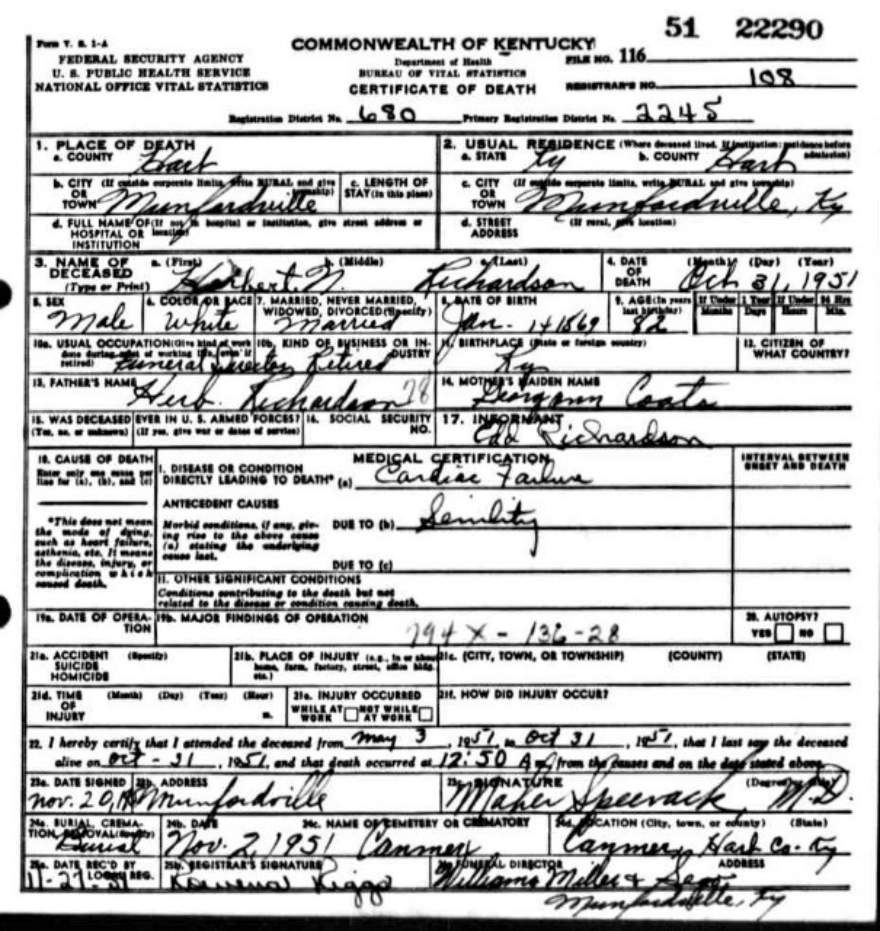 51 22290
Form V. S. 1-A
COMMONWEALTH OF KENTUCKY
FEDERAL SECURITY AGENCY
U. S. PUBLIC HEALTH SERVICE
NATIONAL OFFICE VITAL STATISTICS
Department of Health
BUREAU OF VITAL STATISTICS
CERTIFICATE OF DEATH
FILE NO. 116
REGISTRAR'S NO. 108
Registration District No. 680 Primary Registration District No. 2245
1. PLACE OF DEATH
a. COUNTY Hart
2. USUAL RESIDENCE (Where deceased lived. If institution: residence before admission)
a. STATE Ky b. COUNTY Hart
b. CITY (If outside corporate limits, write RURAL and give township)
OR TOWN Munfordville
c. LENGTH OF STAY (in this place)
c. CITY (If outside corporate limits, write RURAL and give township)
OR TOWN Munfordville, Ky
d. FULL NAME OF (If not in hospital or institution, give street address or location)
HOSPITAL OR INSTITUTION
d. STREET ADDRESS (If rural, give location)
3. NAME OF DECEASED (Type or Print)
a. (First) b. (Middle) c. (Last)
Herbert N. Richardson
4. DATE OF DEATH (Month) (Day) (Year)
Oct 31, 1951
5. SEX
Male
6. COLOR OR RACE
White
7. MARRIED, NEVER MARRIED, WIDOWED, DIVORCED (Specify)
Married
8. DATE OF BIRTH
Jan. 1869
9. AGE (In years last birthday)
82
If Under 1 Year Months Days
If Under 24 Hrs Hours Min.
10a. USUAL OCCUPATION (Give kind of work done during most of working life, even if retired)
Funeral Director Retired
10b. KIND OF BUSINESS OR INDUSTRY
11. BIRTHPLACE (State or foreign country)
Ky
12. CITIZEN OF WHAT COUNTRY?
13. FATHER'S NAME
Herb. Richardson 28
14. MOTHER'S MAIDEN NAME
Georgann Coats
15. WAS DECEASED EVER IN U. S. ARMED FORCES?
(Yes, no, or unknown) (If yes, give war or dates of service)
16. SOCIAL SECURITY NO.
17. INFORMANT
Edd Richardson
18. CAUSE OF DEATH
Enter only one cause per line for (a), (b), and (c)
MEDICAL CERTIFICATION
INTERVAL BETWEEN ONSET AND DEATH
I. DISEASE OR CONDITION
DIRECTLY LEADING TO DEATH* (a) Cardiac Failure
ANTECEDENT CAUSES
*This does not mean the mode of dying, such as heart failure, asthenia, etc. It means the disease, injury, or complication which caused death.
Morbid conditions, if any, giving rise to the above cause (a) stating the underlying cause last.
DUE TO (b) Senility
DUE TO (c)
II. OTHER SIGNIFICANT CONDITIONS
Conditions contributing to the death but not related to the disease or condition causing death.
19a. DATE OF OPERATION
19b. MAJOR FINDINGS OF OPERATION
794X - 136-28
20. AUTOPSY?
YES NO
21a. ACCIDENT SUICIDE HOMICIDE (Specify)
21b. PLACE OF INJURY (e.g., in or about home, farm, factory, street, office bldg. etc.)
21c. (CITY, TOWN, OR TOWNSHIP) (COUNTY) (STATE)
21d. TIME OF INJURY (Month) (Day) (Year) (Hour) m.
21e. INJURY OCCURRED
WHILE AT WORK NOT WHILE AT WORK
21f. HOW DID INJURY OCCUR?
22. I hereby certify that I attended the deceased from May 3, 1951, to Oct 31, 1951, that I last saw the deceased
alive on Oct - 31, 1951, and that death occurred at 12:50 A m., from the causes and on the date stated above.
23a. DATE SIGNED
Nov. 20,
23b. ADDRESS
Munfordville
23c. SIGNATURE (Degree or title)
Maher Speevack, M.D.
24a. BURIAL, CREMATION, REMOVAL (Specify)
Burial
24b. DATE
Nov. 2, 1951
24c. NAME OF CEMETERY OR CREMATORY
Canmer
24d. LOCATION (City, town, or county) (State)
Canmer, Hart Co. Ky
25a. DATE REC'D BY LOCAL REG.
11-27-51
25b. REGISTRAR'S SIGNATURE
Rowena Riggs
26. FUNERAL DIRECTOR ADDRESS
Williams Miller & Sego
Munfordville, Ky